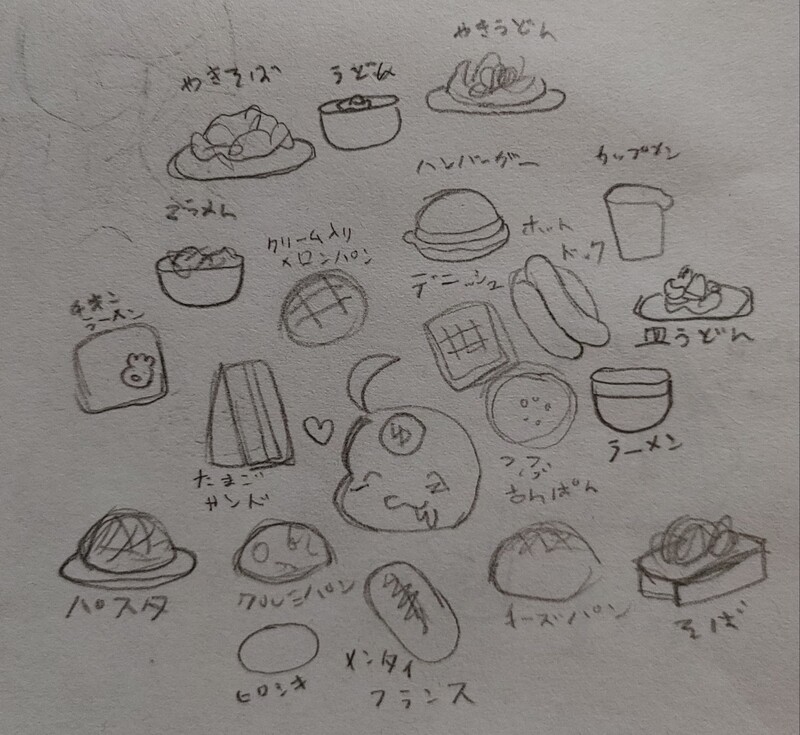 やきうどん
やきそば
うどん
ハンバーガー
カップメン
クリーム入り
メロンパン
ホット
ドック
デニッシュ
チキン
ラーメン
皿うどん
ゆ
ラーメン
たまご
サンド
つぶ
あんぱん
パスタ
クルミパン
チーズパン
そば
ピロシキ
メンタイ
フランス